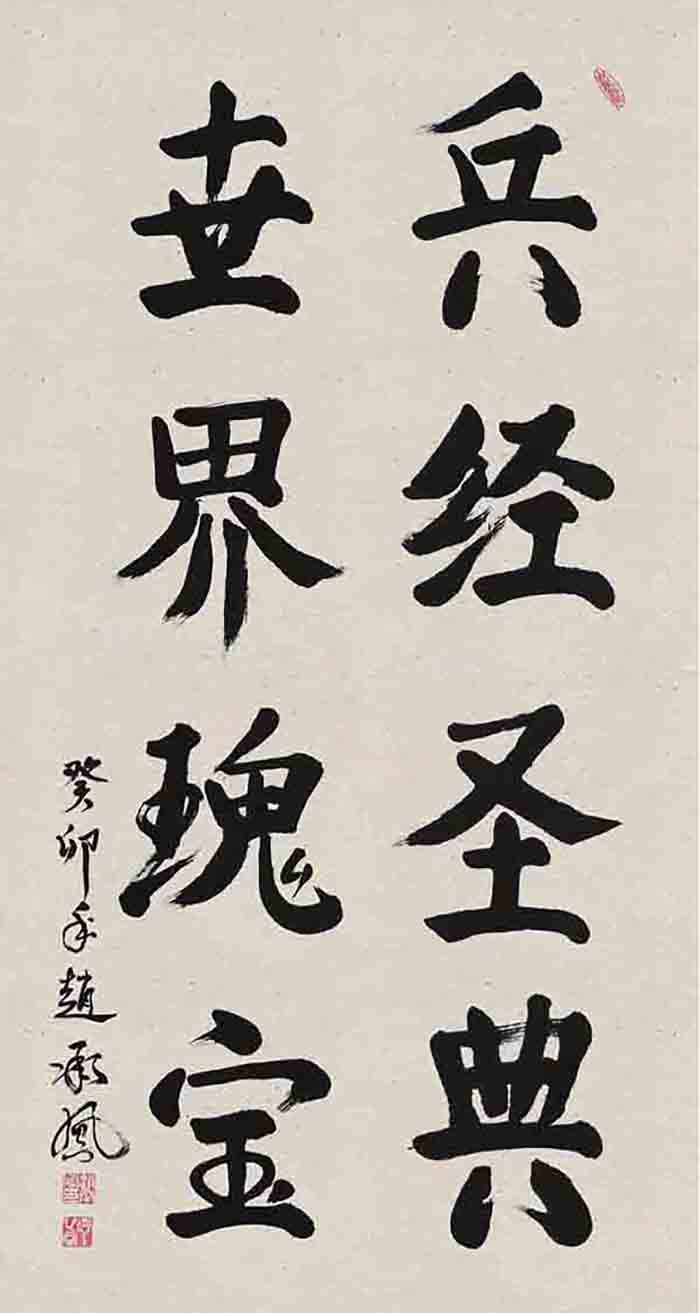 兵经圣典
世界瑰宝
癸卯年赵承凤